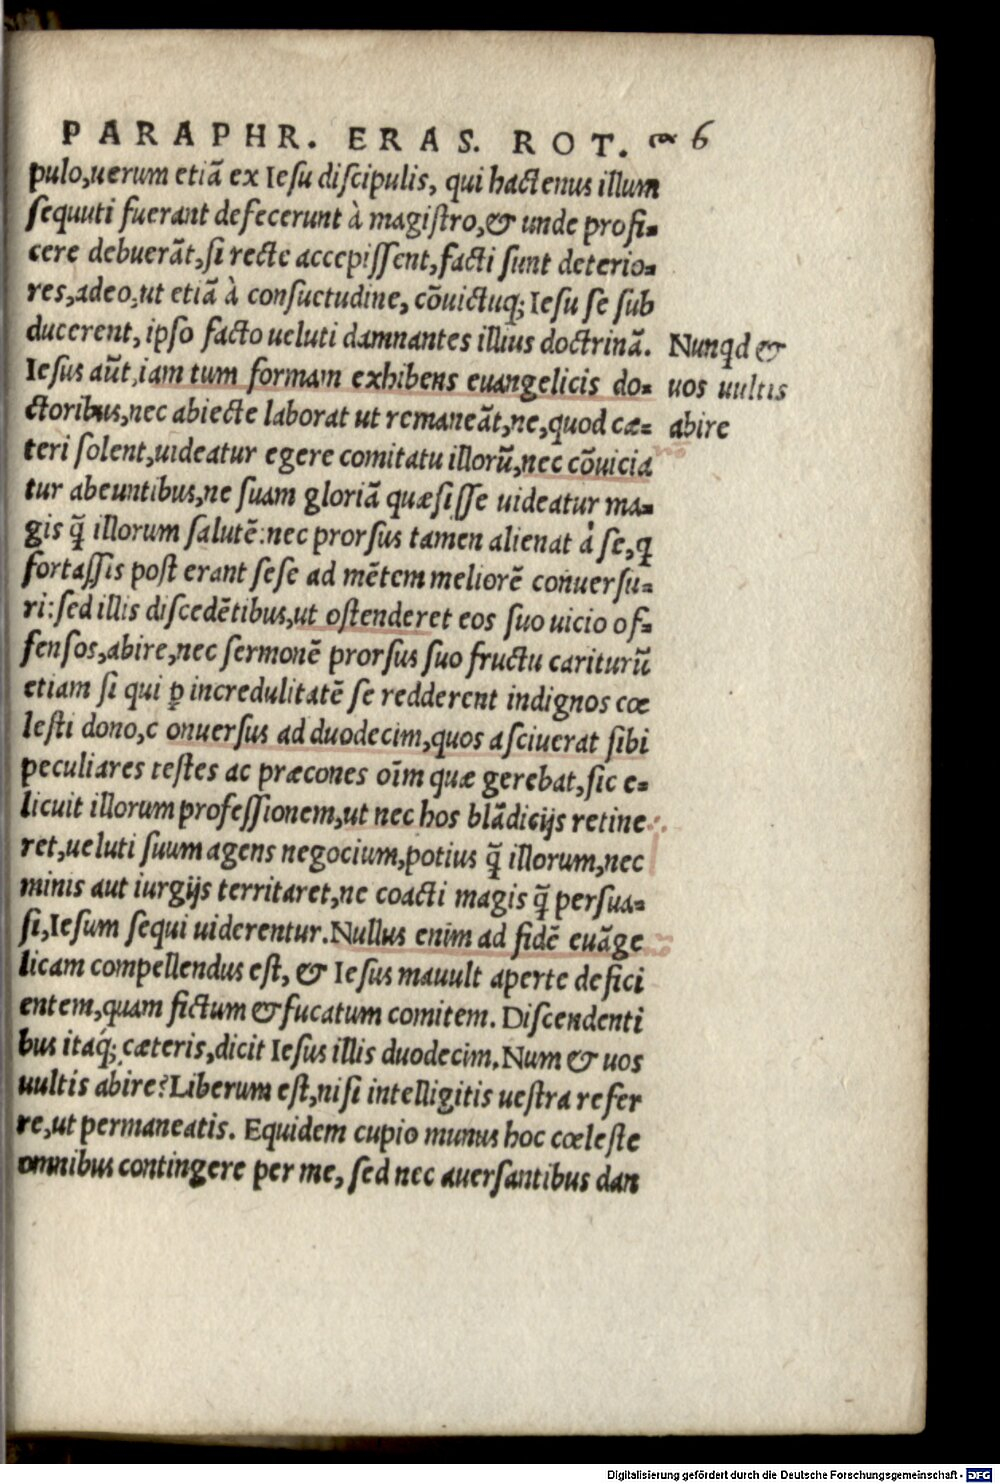 PARAPHR. ERAS. ROT. 6
pulo,uerum etiã ex Iesu discipulis, qui hactenus illum
sequuti fuerant defecerunt à magistro,& unde profi-
cere debuerãt,si recte accepissent,facti sunt deterio-
res,adeo,ut etiã à consuetudine, cõuictuq; Iesu se sub
ducerent, ipso facto ueluti damnantes illius doctrinã.
Iesus aũt,iam tum formam exhibens euangelicis do-
ctoribus,nec abiecte laborat ut remaneãt,ne,quod cæ-
teri solent,uideatur egere comitatu illorũ,nec cõuicia
tur abeuntibus,ne suam gloriã quæsisse uideatur ma-
gis q̃ illorum salutẽ:nec prorsus tamen alienat à se,q
fortassis post erant sese ad mẽtem meliorẽ conuersu-
ri:sed illis discedẽtibus,ut ostenderet eos suo uicio of-
fensos,abire,nec sermonẽ prorsus suo fructu cariturũ
etiam si qui ꝑ incredulitatẽ se redderent indignos cœ
lesti dono,c onuersus ad duodecim,quos asciuerat sibi
peculiares testes ac præcones oĩm quæ gerebat,sic e-
licuit illorum professionem,ut nec hos blãdicijs retine
ret,ueluti suum agens negocium,potius q̃ illorum,nec
minis aut iurgijs territaret,ne coacti magis q̃ persua-
si,Iesum sequi uiderentur.Nullus enim ad fidẽ euãge
licam compellendus est, & Iesus mauult aperte defici
entem,quam fictum & fucatum comitem. Discendenti
bus itaq; cæteris,dicit Iesus illis duodecim.Num & uos
uultis abire?Liberum est,nisi intelligitis uestra refer
re,ut permaneatis. Equidem cupio munus hoc cœleste
omnibus contingere per me, sed nec auersantibus dan
Nunqd &
uos uultis
abire
Digitalisierung gefördert durch die Deutsche Forschungsgemeinschaft - DFG